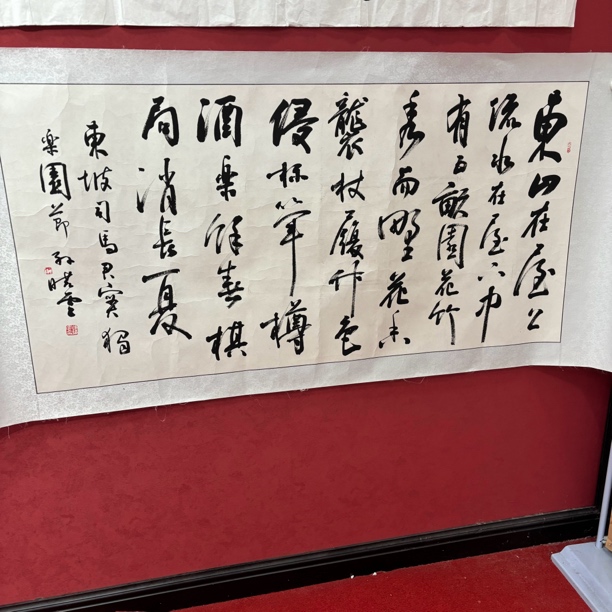 東山在屋上
流水在屋下中
有五畝園花竹
秀而野花香
襲杖屨竹色
侵杯斝樽
酒樂餘春棋
局消長夏
東坡司馬君實獨
樂園節 孫曉雲